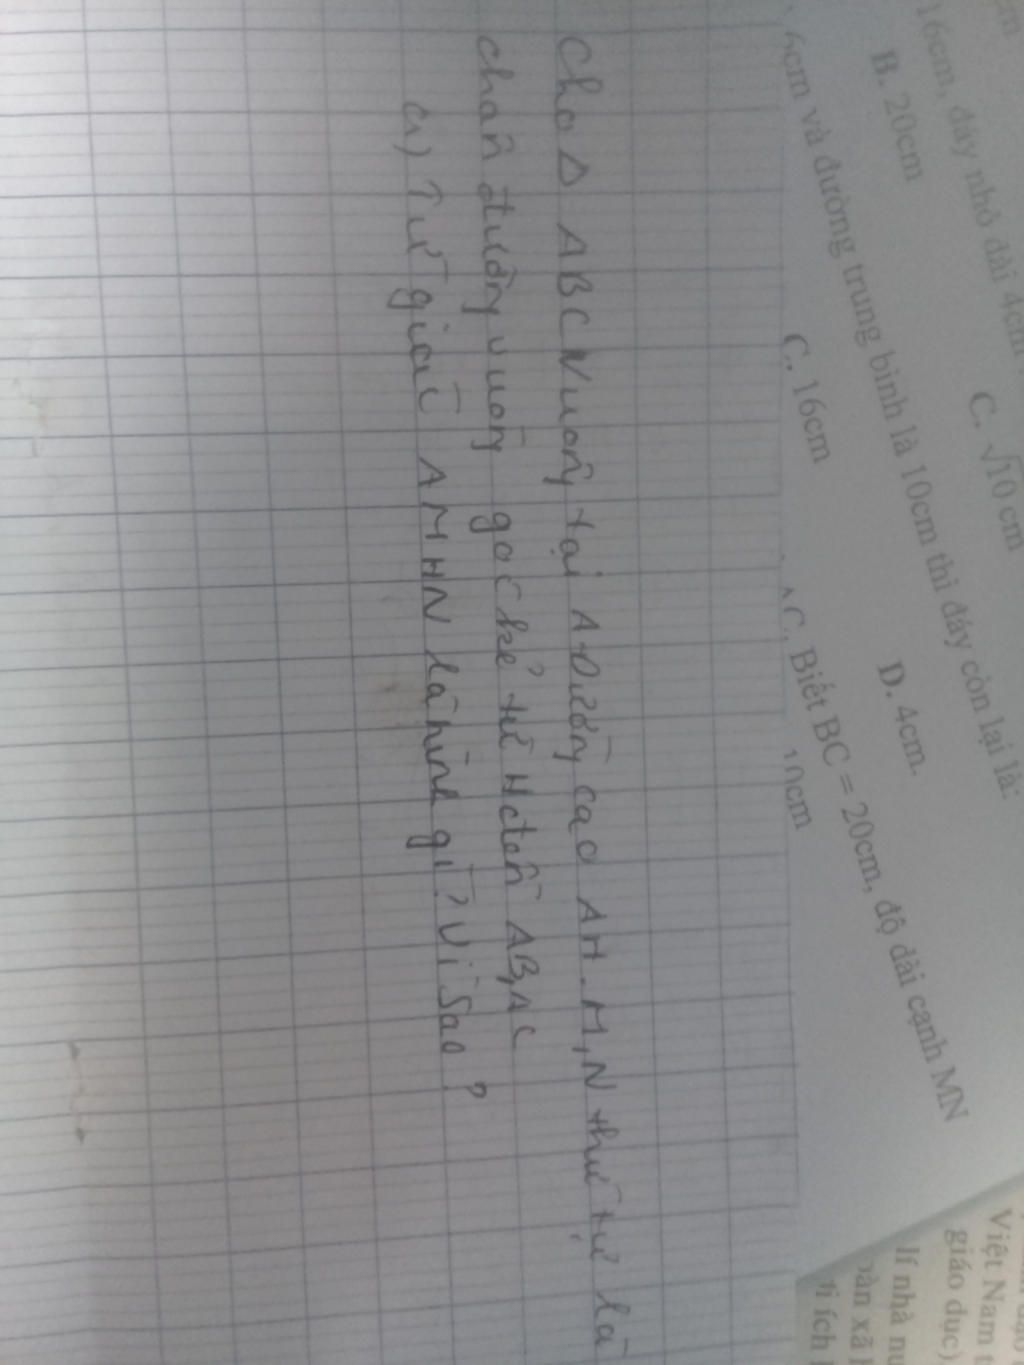 16cm, đáy nhỏ dài 4cm
C. √10 cm
B. 20cm
D. 4cm.
6cm và đường trung bình là 10cm thì đáy còn lại là:
C. 16cm
10cm
AC. Biết BC = 20cm, độ dài cạnh MN
Cho Δ ABC Vuông tại A Đường cao AH. M, N thứ tự là
chân đường vuông góc kẻ từ H đến AB, AC
a) Tứ giác AMHN là hình gì? Vì sao?
Việt Nam
giáo dục)
lí nhà
xã
ích